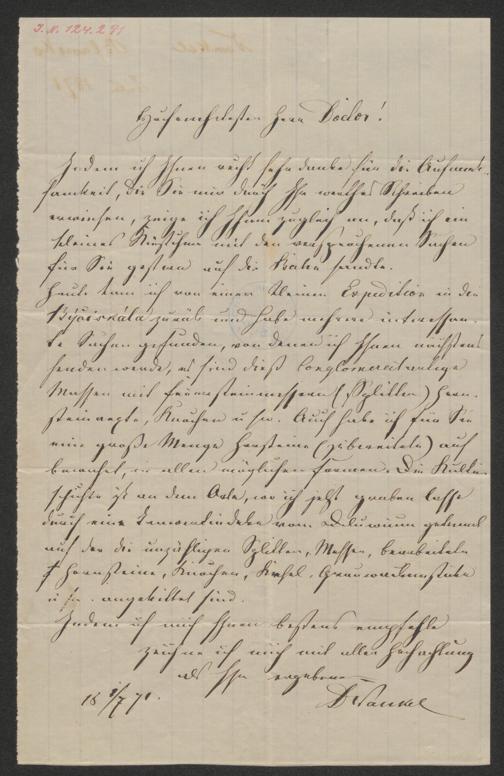 J. N. 124.291
Hochverehrtester Herr Doctor!
Indem ich Ihnen recht sehr danke für die Aufmerk-
samkeit, die Sie mir durch Ihr werthes Schreiben
erwiesen, zeige ich Ihnen zugleich an, daß ich ein
kleines Kistchen mit den versprochenen Sachen
für Sie gestern auf die Bahn sandte.
Heute kam ich von einer kleinen Expedition in die
Býčiskála zurück und habe mehrere interessan-
te Sachen gefunden, von denen ich Ihnen nächstens
senden werde, es sind dieß conglomeratartige
Massen mit Feuersteinmessern (Splitter) Horn-
steinaexte, Knochen u sw. Auch habe ich für Sie
eine große Menge Hornsteine (bearbeitete) auf
bewahrt, in allen möglichen Formen. Die Kultur-
schichte ist an dem Orte, wo ich jetzt graben lasse
durch eine vom Diluvium getrennt
auf der die unzähligen Splitter, Messer, bearbeiteten
Hornsteine, Knochen, Kiesel,
u sw. angekittet sind.
Indem ich mich Ihnen bestens empfehle
zeichne ich mich mit aller Hochachtung
als Ihr ergebener
18 /7 71. D Wankel